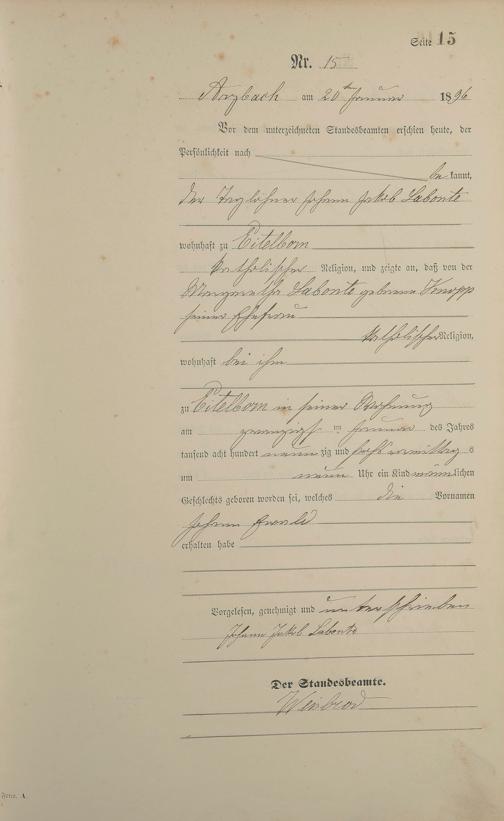 Seite 15
Nr. 15
Arzbach am 20ten Januar 1896
Vor dem unterzeichneten Standesbeamten erschien heute, der
Persönlichkeit nach
be kannt,
der Taglöhner Johann Jakob Labonte
wohnhaft zu Eitelborn
katholischer Religion, und zeigte an, daß von der
Margaretha Labonte geborene Knopp
seiner Ehefrau
katholischer Religion,
wohnhaft bei ihm
zu Eitelborn in seiner Wohnung
am zwanzigsten Januar des Jahres
tausend acht hundert neunzig und sechs vormittags
um neun Uhr ein Kind männlichen
Geschlechts geboren worden sei, welches die Vornamen
Johann Ewald
erhalten habe
Vorgelesen, genehmigt und unterschrieben
Johann Jakob Labonte
Der Standesbeamte.
Form. A